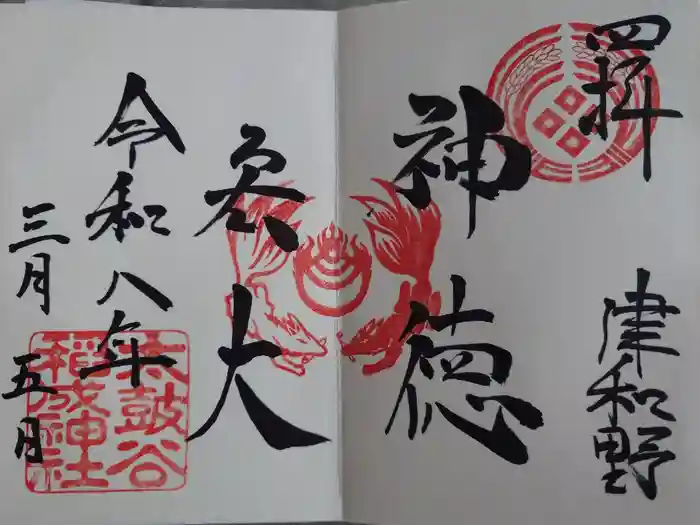 四拝
津和野
神徳
大
令和八年
三月五日
太鼓谷
稲成神社